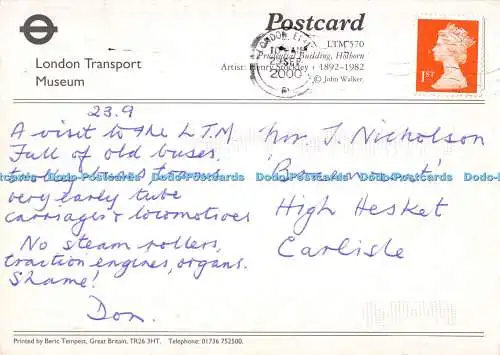 London Transport
Museum
Postcard
LTM 570
Prudential Building, Holborn
Artist: Henry Stockley • 1892–1982
© John Walker.
2000
1ST
23.9
A visit to the L.T.M
Full of old buses,
trolleybuses, trams
very early tube
carriages & locomotives
No steam rollers,
traction engines, organs.
Shame!
Don.
J. Nicholson
High Hesket
Carlisle
Dodo-Postcards Dodo-Postcards Dodo-Postcards Dodo-Postcards
Printed by Beric Tempest, Great Britain, TR26 3HT. Telephone: 01736 752500.